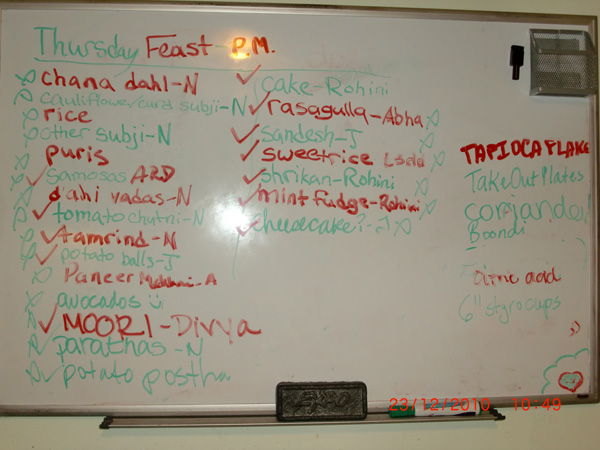 Thursday Feast P.M.
chana dahl-N
cauliflower/curd subji-N
rice
other subji-N
puris
samosas ARD
dahi vadas-N
tomato chutni-N
tamrind-N
potato balls-J
Paneer -A
avocados
MOORI-Divya
parathas-N
potato postha
cake-Rohini
rasagulla-Abha
sandesh-J
sweetrice
shrikan-Rohini
mint fudge-Rohini
cheesecake
TAPIOCA FLAKE
TakeOutPlates
Boondi
acid
6" styrocups
EXPO
23/12/2010 10:49